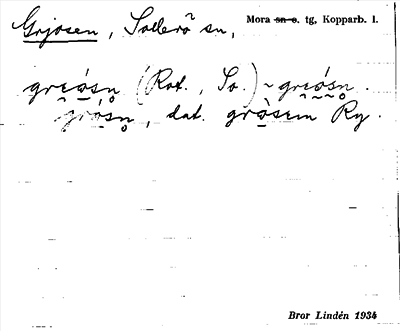 Grjosen, Sollerö sn, Mora sn o. tg, Kopparb. l.
greó̱sn̥ (Rot., So.) ~ greó̱sn̥.
gró̱sn̥, dat. grò̱sem Ry.
Bror Lindén 1934